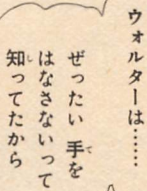 ウォルターは……
ぜったい 手を
はなさないって
知ってたから